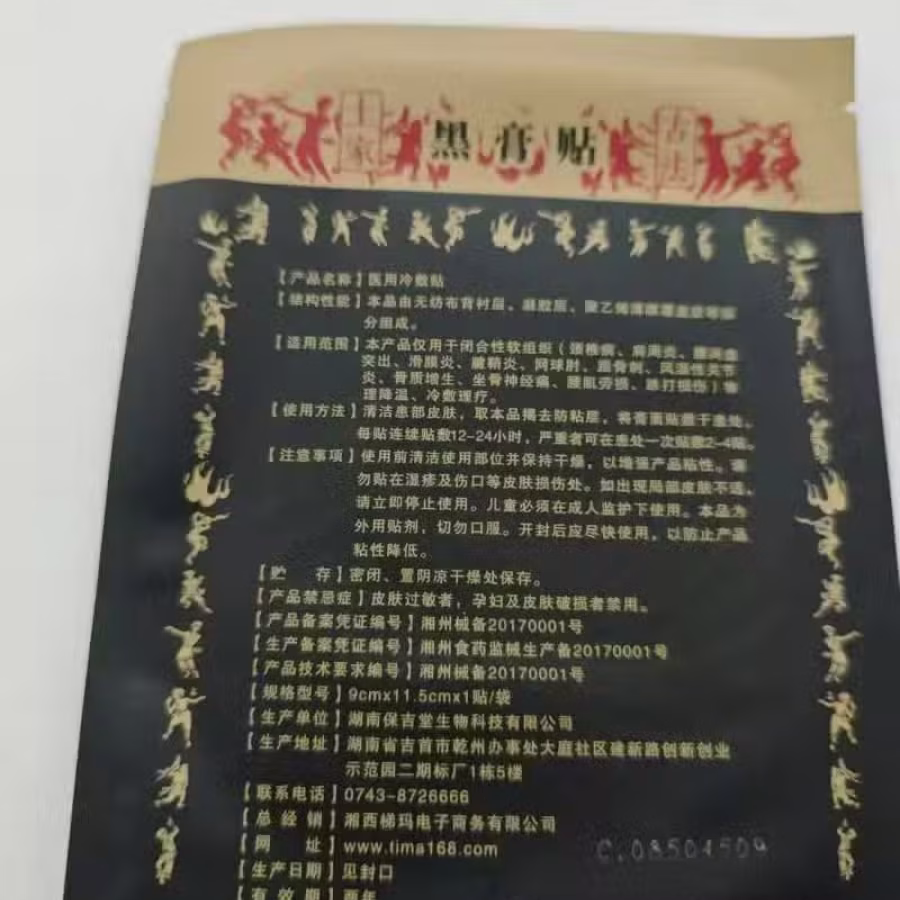 土家 黑膏贴 古方
【产品名称】医用冷敷贴
【结构性能】本品由无纺布背衬层、凝胶层、聚乙烯薄膜覆盖层等部
分组成。
【适用范围】本产品仅用于闭合性软组织（颈椎病、肩周炎、腰间盘
突出、滑膜炎、腱鞘炎、网球肘、跟骨刺、风湿性关节
炎、骨质增生、坐骨神经痛、腰肌劳损、跌打损伤）物
理降温、冷敷理疗。
【使用方法】清洁患部皮肤，取本品揭去防粘层，将膏面贴敷于患处。
每贴连续贴敷12-24小时，严重者可在患处一次贴敷2-4贴。
【注意事项】使用前清洁使用部位并保持干燥，以增强产品粘性。请
勿贴在湿疹及伤口等皮肤损伤处。如出现局部皮肤不适，
请立即停止使用。儿童必须在成人监护下使用。本品为
外用贴剂，切勿口服。开封后应尽快使用，以防止产品
粘性降低。
【贮 存】密闭、置阴凉干燥处保存。
【产品禁忌症】皮肤过敏者，孕妇及皮肤破损者禁用。
【产品备案凭证编号】湘州械备20170001号
【生产备案凭证编号】湘州食药监械生产备20170001号
【产品技术要求编号】湘州械备20170001号
【规格型号】9cmx11.5cmx1贴/袋
【生产单位】湖南保吉堂生物科技有限公司
【生产地址】湖南省吉首市乾州办事处大庭社区建新路创新创业
示范园二期标厂1栋5楼
【联系电话】0743-8726666
【总 经 销】湘西梯玛电子商务有限公司
【网 址】www.tima168.com
C.08504509
【生产日期】见封口
【有 效 期】两年